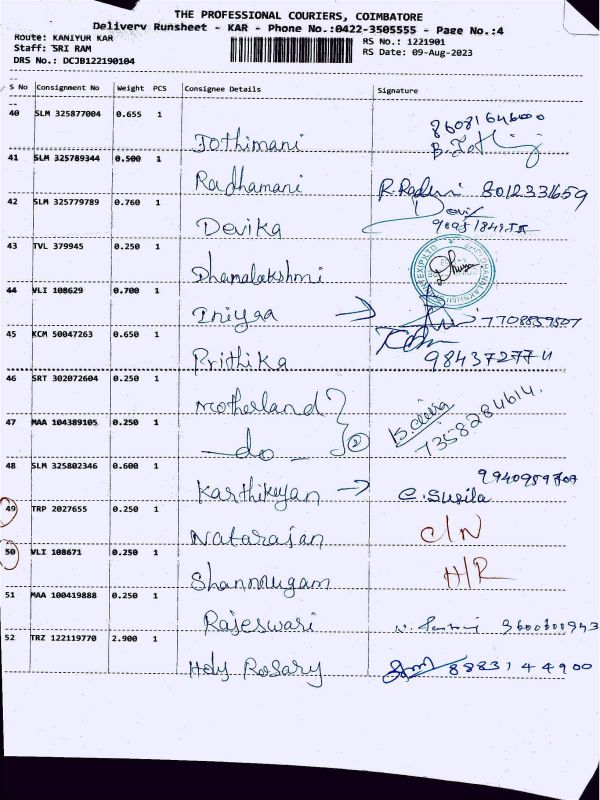 THE PROFESSIONAL COURIERS, COIMBATORE
Delivery Runsheet - KAR - Phone No.:0422-3505555 - Page No.:4
Route: KANIYUR KAR
RS No.: 1221901
Staff: SRI RAM
RS Date: 09-Aug-2023
DRS No.: DCJB122190104
S No Consignment No Weight PCS Consignee Details Signature
40 SLM 325877004 0.655 1 Jothimani 86081646000
B. Jothi
41 SLM 325789344 0.500 1 Radhamani R. 8012331659
42 SLM 325779789 0.760 1 Devika Devi
43 TVL 379945 0.250 1 Dhanalakshmi
44 VLI 108629 0.700 1 Iniyaa → 7708859507
45 KCM 50047263 0.650 1 Prithika
46 SRT 302072604 0.250 1 Motherland
47 MAA 104389105 0.250 1 —do— 2 7358284614.
48 SLM 325802346 0.600 1 Karthikeyan → C. Susila
49 TRP 2027655 0.250 1 Natarajan C/N
50 VLI 108671 0.250 1 Shanmugam H/R
51 MAA 100419888 0.250 1 Rajeswari 9600800943
52 TRZ 122119770 2.900 1 Holy Rosary 8883144900